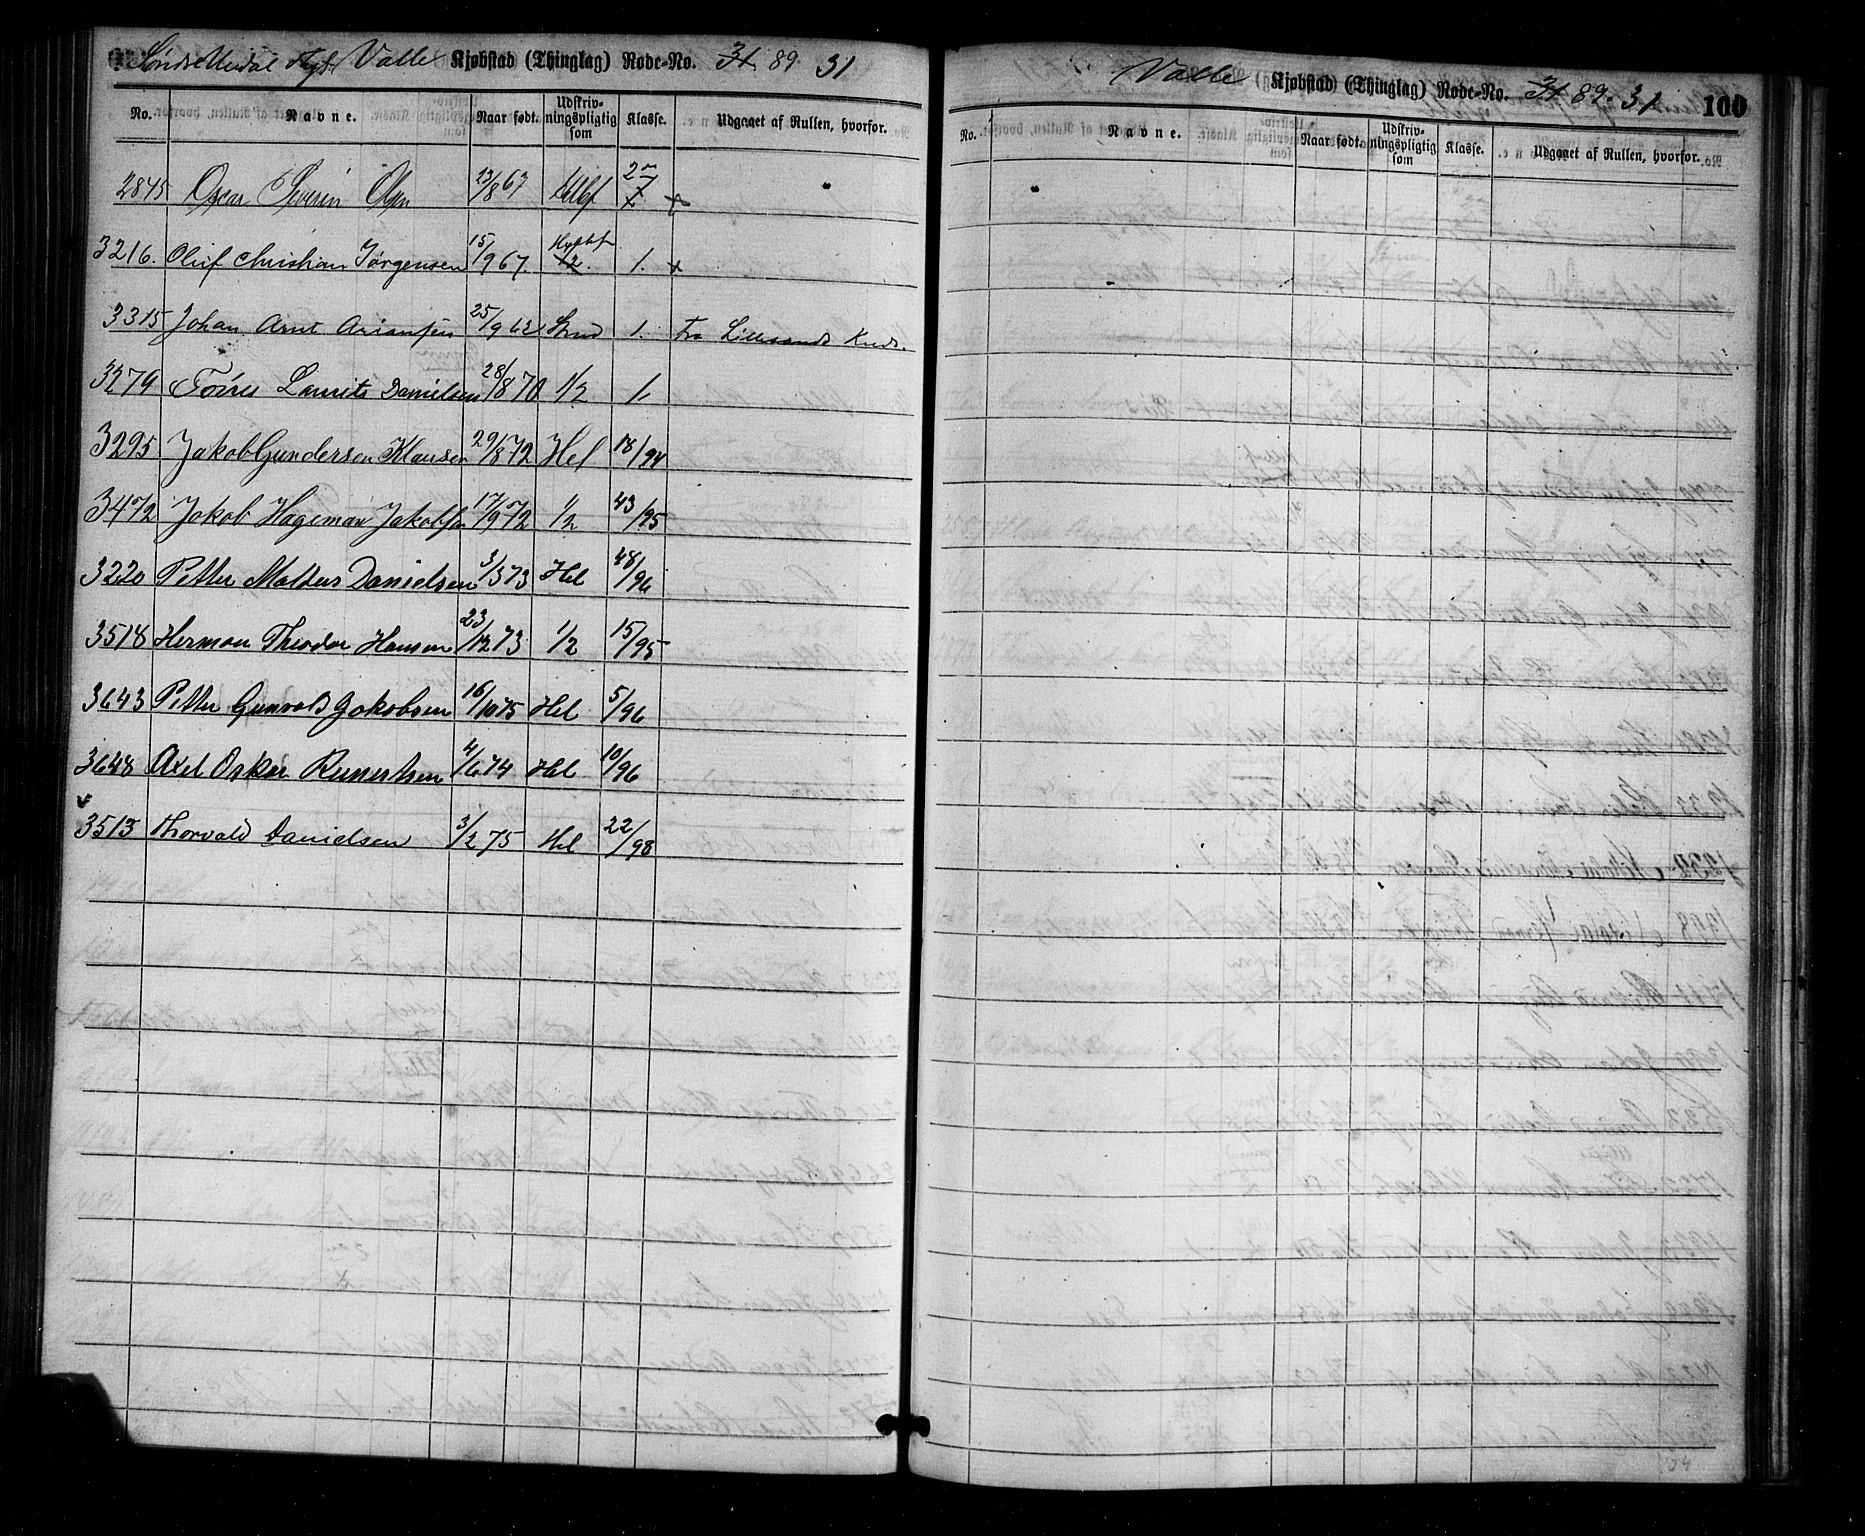 Valle Kjøbstad (Thinglag) Rode-No. 31 89 31
No. Navne. Naar født. Udskrivningspligtig som Klasse. Udgaaet af Rullen, hvorfor.
2845 Oscar Severin Olsen 23/8 67 2
3216. Oluf Christian Jørgensen 15/9 67. 1/2 1. x
3315 Johan Arnt 25/9 62 1. Fra Lillesands Kreds.
3279 Laurits Danielsen 28/8 70 1/2 1.
3295 Jakob Gundersen Klausen 29/8 72 Hel 18/94
3472 Jakob Hageman Jakobsen 17/9 72 1/2 43/95
3220 Petter Mathias Danielsen 3/3 73 Hel 48/96
3518 Herman Theodor Hansen 23/12 73 1/2 15/95
3643 Petter Gunvald Jakobsen 16/10 75 Hel 5/96
3648 Axel Oskar Reinertsen 4/6 74 Hel 10/96
3513 Thorvald Danielsen 3/2 75 Hel 22/98
Valle Kjøbstad (Thinglag) Rode-No. 31 89. 31 100
No. Navne. Naar født. Udskrivningspligtig som Klasse. Udgaaet af Rullen, hvorfor.